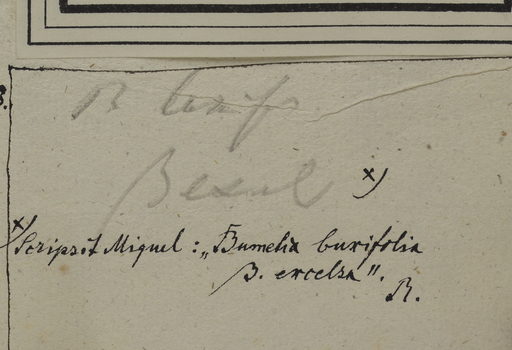 B buxifo
Bexcel x)
x) Scripsit Miquel: „Bumelia buxifolia
β. excelsa".
R.